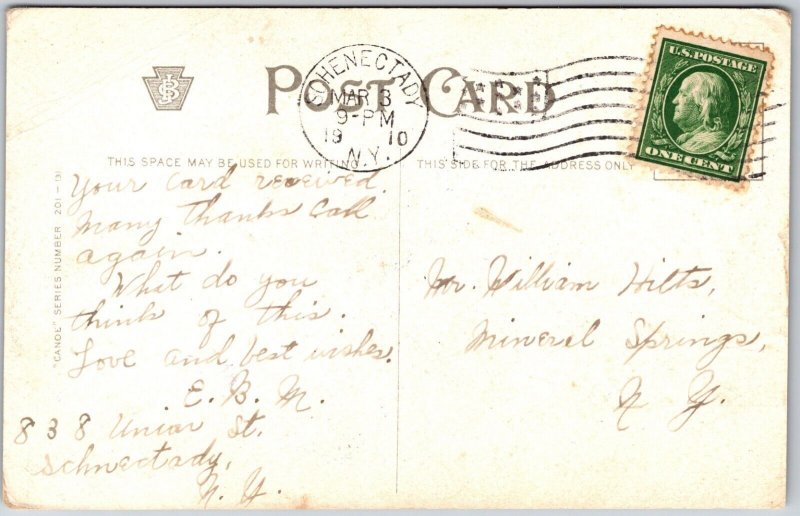 POST CARD
SCHENECTADY
MAR 3
9-PM
19 10
N.Y.
U.S. POSTAGE
ONE CENT
THIS SPACE MAY BE USED FOR WRITING
THIS SIDE FOR THE ADDRESS ONLY
"CANOE" SERIES NUMBER 201-131
Your card received.
Many thanks call
again.
What do you
think of this.
Love and best wishes.
E. B. M.
838 Union St.
Schnectady,
N. Y.
Mr. William Hilts,
Mineral Springs,
N. Y.